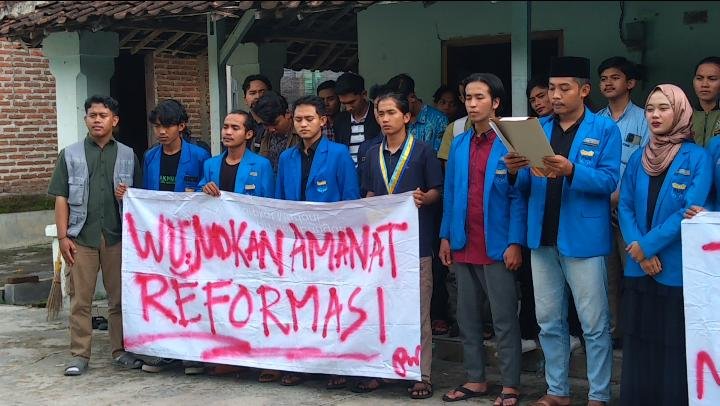 WUJUDKAN AMANAT
REFORMASI